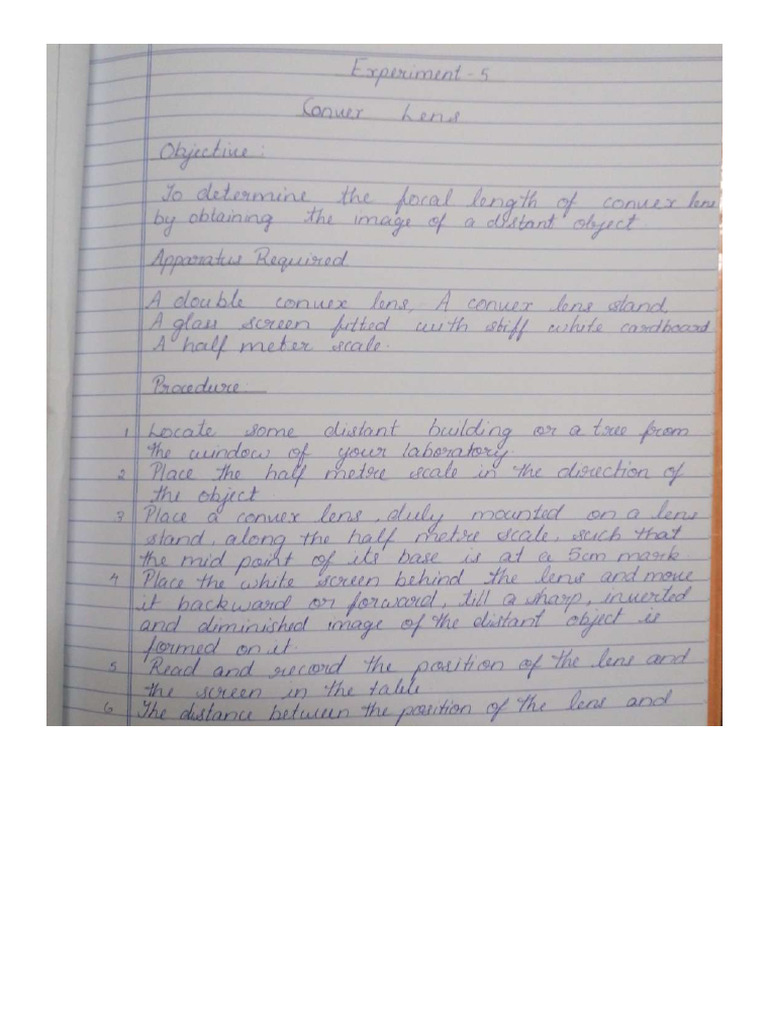 Experiment - 5
Convex Lens
Objective :
To determine the focal length of convex lens
by obtaining the image of a distant object.
Apparatus Required
A double convex lens, A convex lens stand,
A glass screen fitted with stiff white cardboard
A half meter scale.
Procedure :
1 Locate some distant building or a tree from
the window of your laboratory.
2 Place the half metre scale in the direction of
the object.
3 Place a convex lens, duly mounted on a lens
stand, along the half metre scale, such that
the mid point of its base is at a 5cm mark.
4 Place the white screen behind the lens and move
it backward or forward, till a sharp, inverted
and diminished image of the distant object is
formed on it.
5 Read and record the position of the lens and
the screen in the table
6 The distance between the position of the lens and